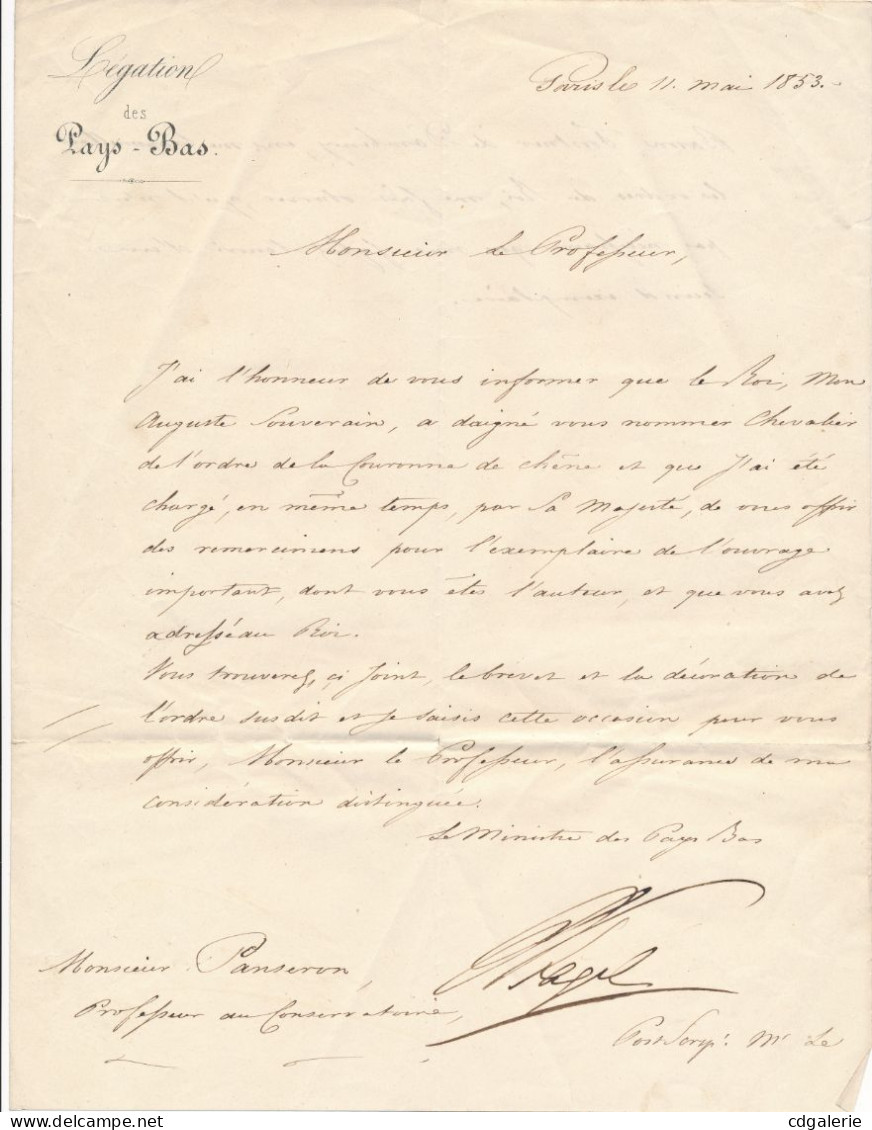 Légation
des
Pays-Bas.
Paris le 11. Mai 1853.
Monsieur le Professeur,
J'ai l'honneur de vous informer que le Roi, Mon
Auguste Souverain, a daigné vous nommer Chevalier
de l'ordre de la Couronne de chêne et que J'ai été
chargé, en même temps, par Sa Majesté, de vous offrir
des remercimens pour l'exemplaire de l'ouvrage
important, dont vous êtes l'auteur, et que vous avez
adressé au Roi.
Vous trouverez, ci Joint, le brevet et la décoration de
l'ordre susdit et je saisis cette occasion pour vous
offrir, Monsieur le Professeur, l'assurance de ma
considération distinguée.
Le Ministre des Pays Bas
Monsieur Panseron,
Professeur au Conservatoire,
Post Scrip: Mr Le
cdgalerie